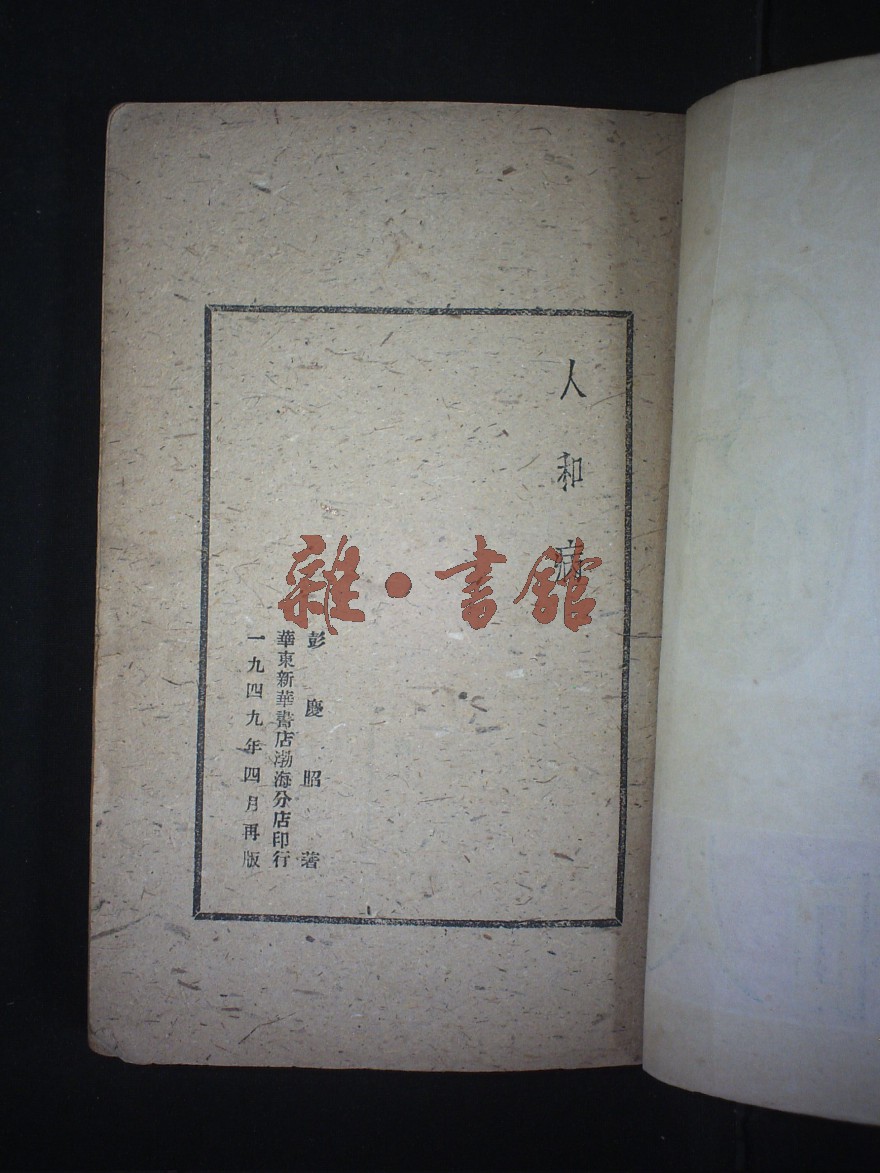 人和病
彭慶昭 著
華東新華書店渤海分店印行
一九四九年四月再版
雜·書館